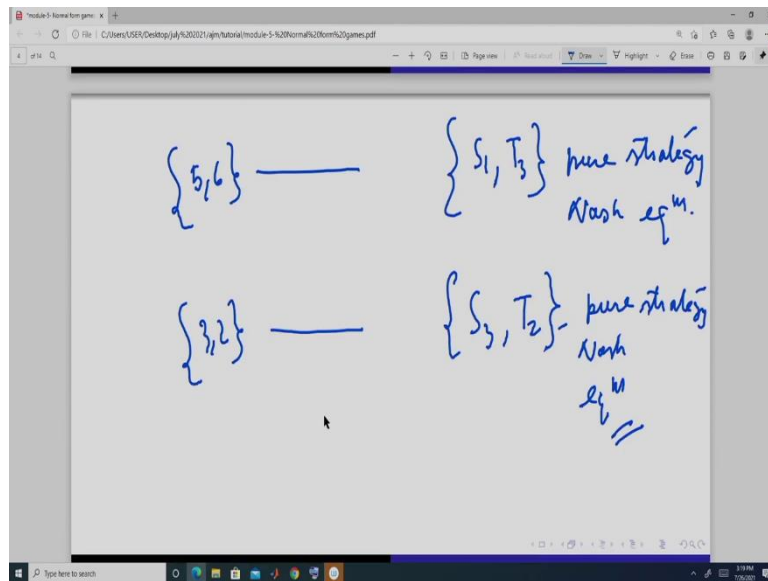 *module-5- Normal form game:
File
C:/Users/USER/Desktop/july%202021/ajm/tutorial/module-5-%20Normal%20form%20games.pdf
4 of 14
Page view
Read aloud
Draw
Highlight
Erase
{5,6} — {S₁, T₃} pure strategy
Nash eqᵐ.
{3,2} — {S₃, T₂} pure strategy
Nash
eqᵐ
Type here to search
3:19 PM
7/26/2021